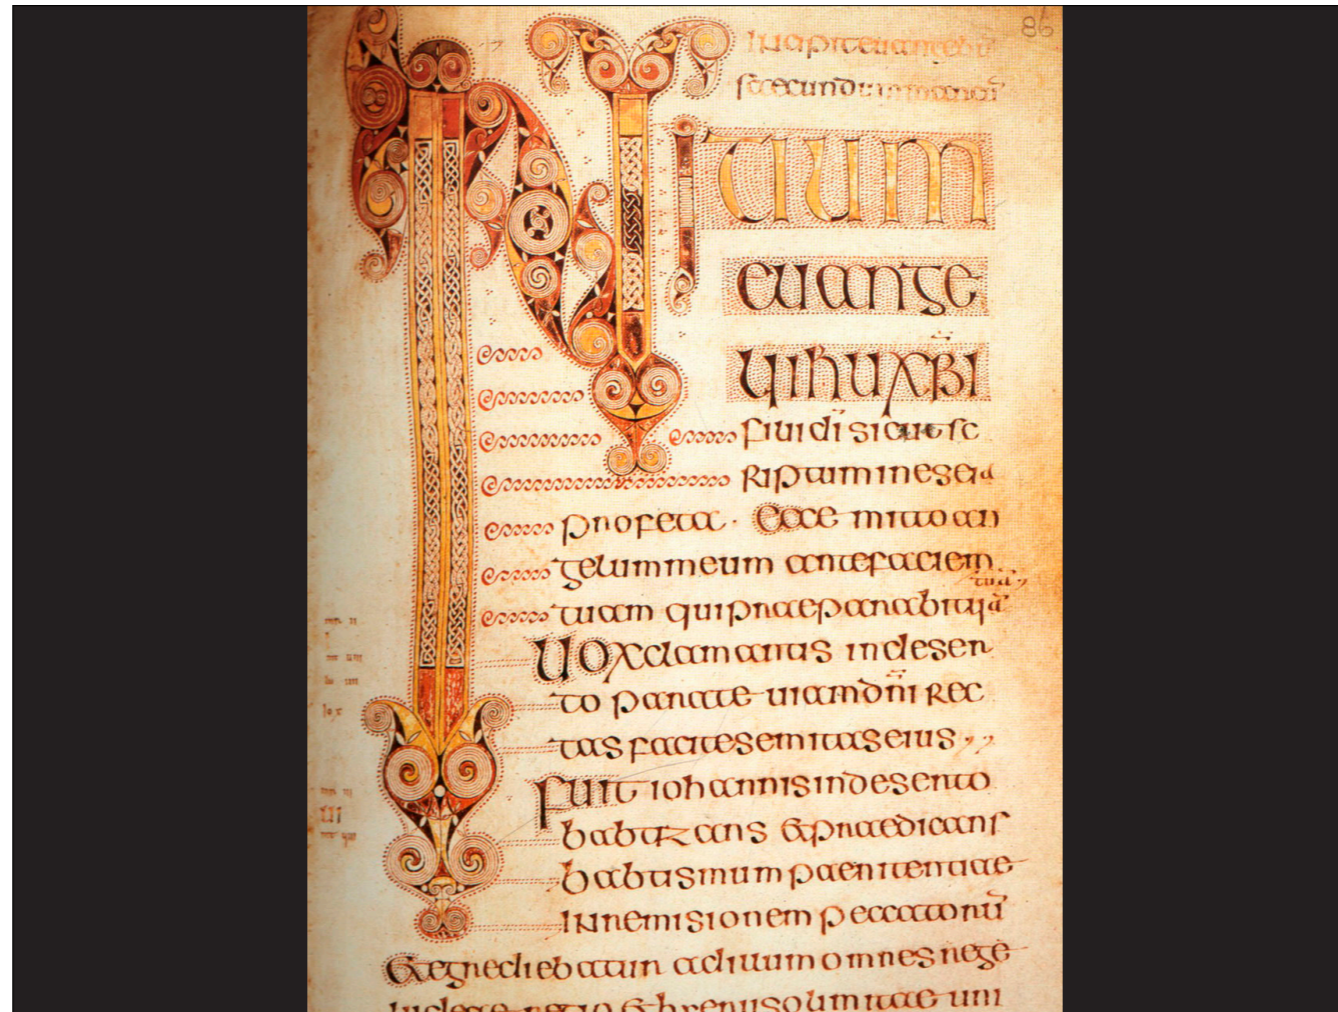 86
Incipit euangeliū
secundum marcū
INITIUM
EUANGE
LII IHU XPI
fili di sicut sc
riptum in eseia
profeta · Ecce mitto an
gelum meum ante faciem
tuam qui praeparabit uiā tuā
Uox clamantis in deser
to parate uiam dñi rec
tas facite semitas eius
fuit iohannis in deserto
babtizans et praedicans
babtismum paenitentiae
in remisionem peccatorū
et egrediebatur ad illum omnes rege